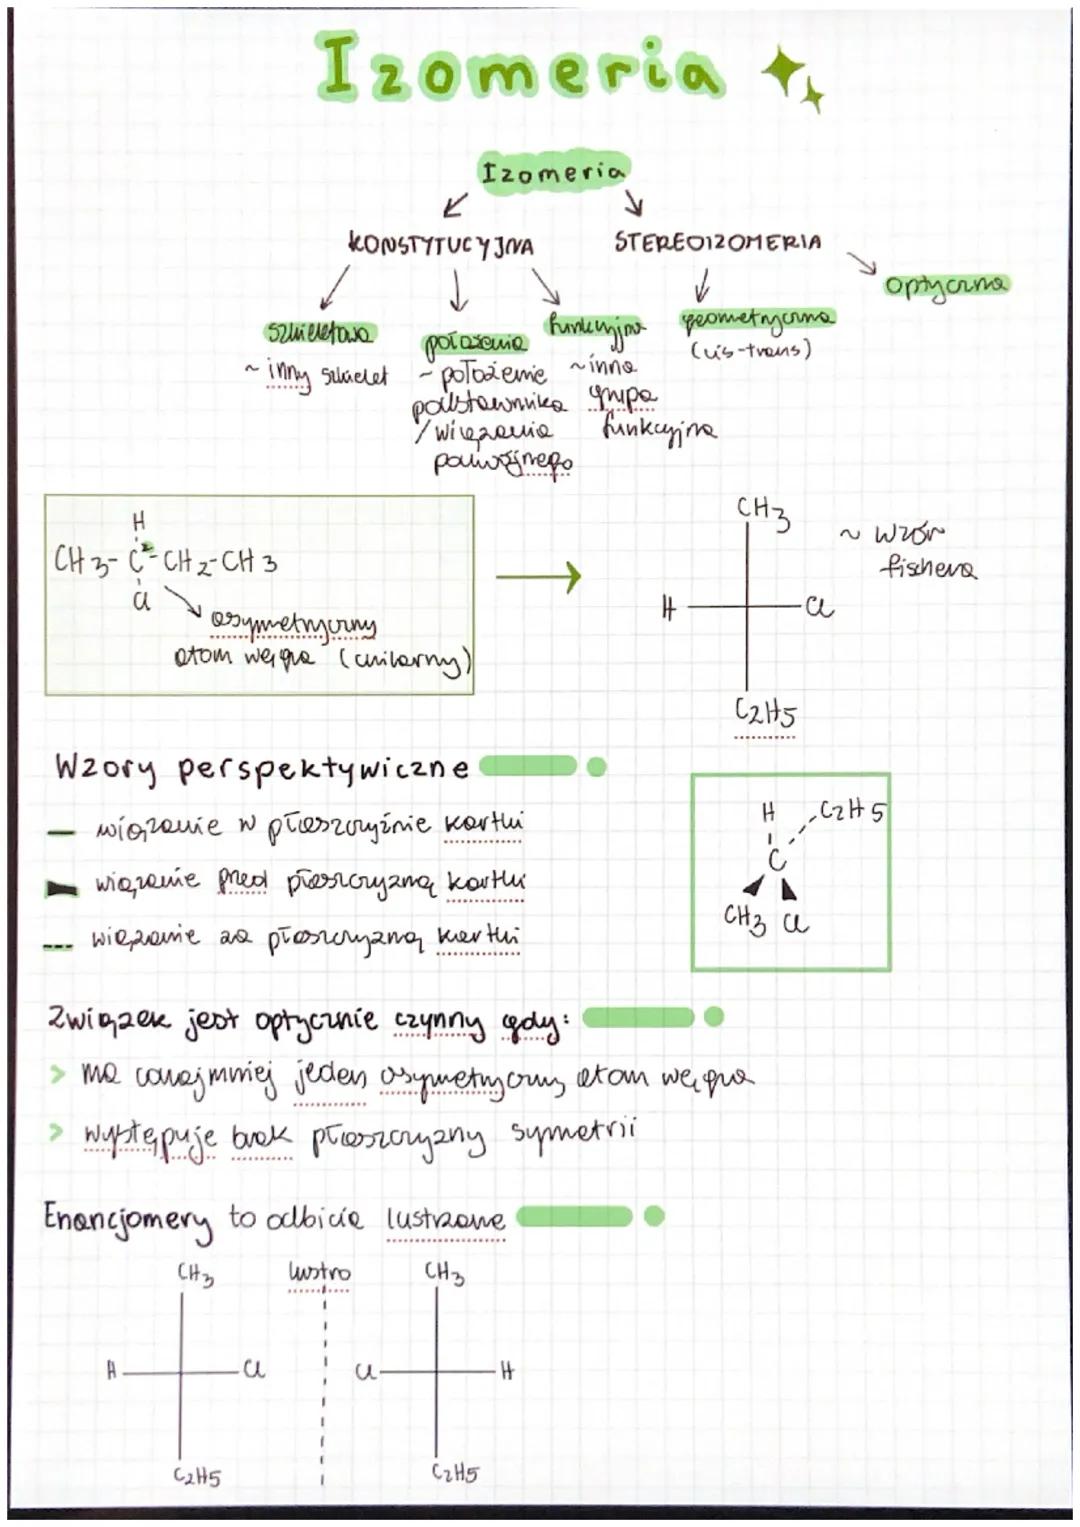 Izomeria
Izomeria
KONSTYTUCYJNA
STEREOIZOMERIA
szkieletowa
~ inny szkielet
położenia
~ położenie
podstawnika
/ wiązania
podwójnego
funkcyjna
~ inna
grupa
funkcyjna
geometryczna
(cis-trans)
optyczna
H
CH3-C²-CH2-CH3
Cl
asymetryczny
atom węgla (chiralny)
CH3
~ wzór
fischera
H
Cl
C2H5
Wzory perspektywiczne
wiązanie w płaszczyźnie kartki
wiązanie przed płaszczyzną kartki
wiązanie za płaszczyzną kartki
H
C2H5
C
CH3 Cl
Związek jest optycznie czynny gdy:
> ma conajmniej jeden asymetryczny atom węgla
> występuje brak płaszczyzny symetrii
Enancjomery to odbicia lustrzane
CH3
lustro
CH3
H
Cl
Cl
H
C2H5
C2H5